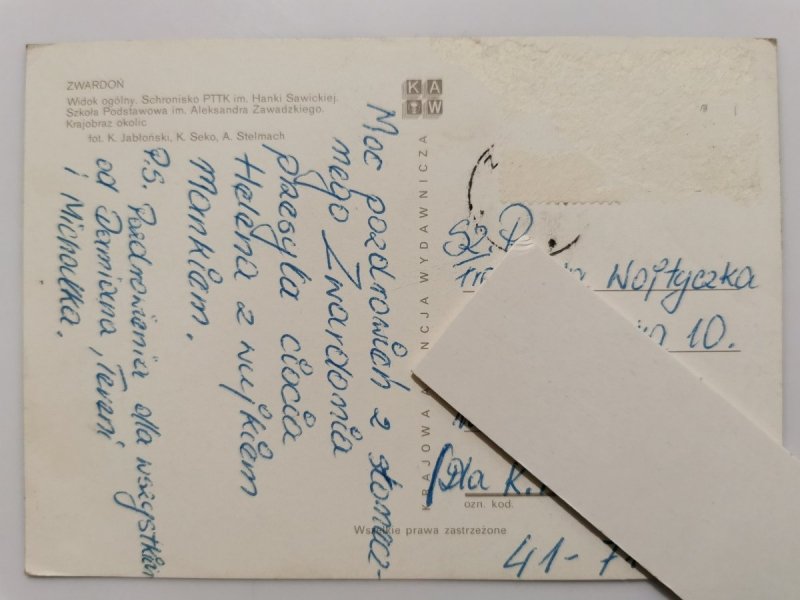 ZWARDOŃ
Widok ogólny. Schronisko PTTK im. Hanki Sawickiej.
Szkoła Podstawowa im. Aleksandra Zawadzkiego.
Krajobraz okolic
fot. K. Jabłoński, K. Seko, A. Stelmach
KAW
Moc pozdrowień z słonecz-
nego Zwardonia
przesyła ciocia
Helena z wujkiem
Mankiem.
P.S. Pozdrowienia dla wszystkich
od Damiana, Tereni
i Michałka.
KRAJOWA NCJA WYDAWNICZA
Sz. P.
Wojtyczka
10.
(Dla K.
ozn. kod.
41-7
Wszelkie prawa zastrzeżone